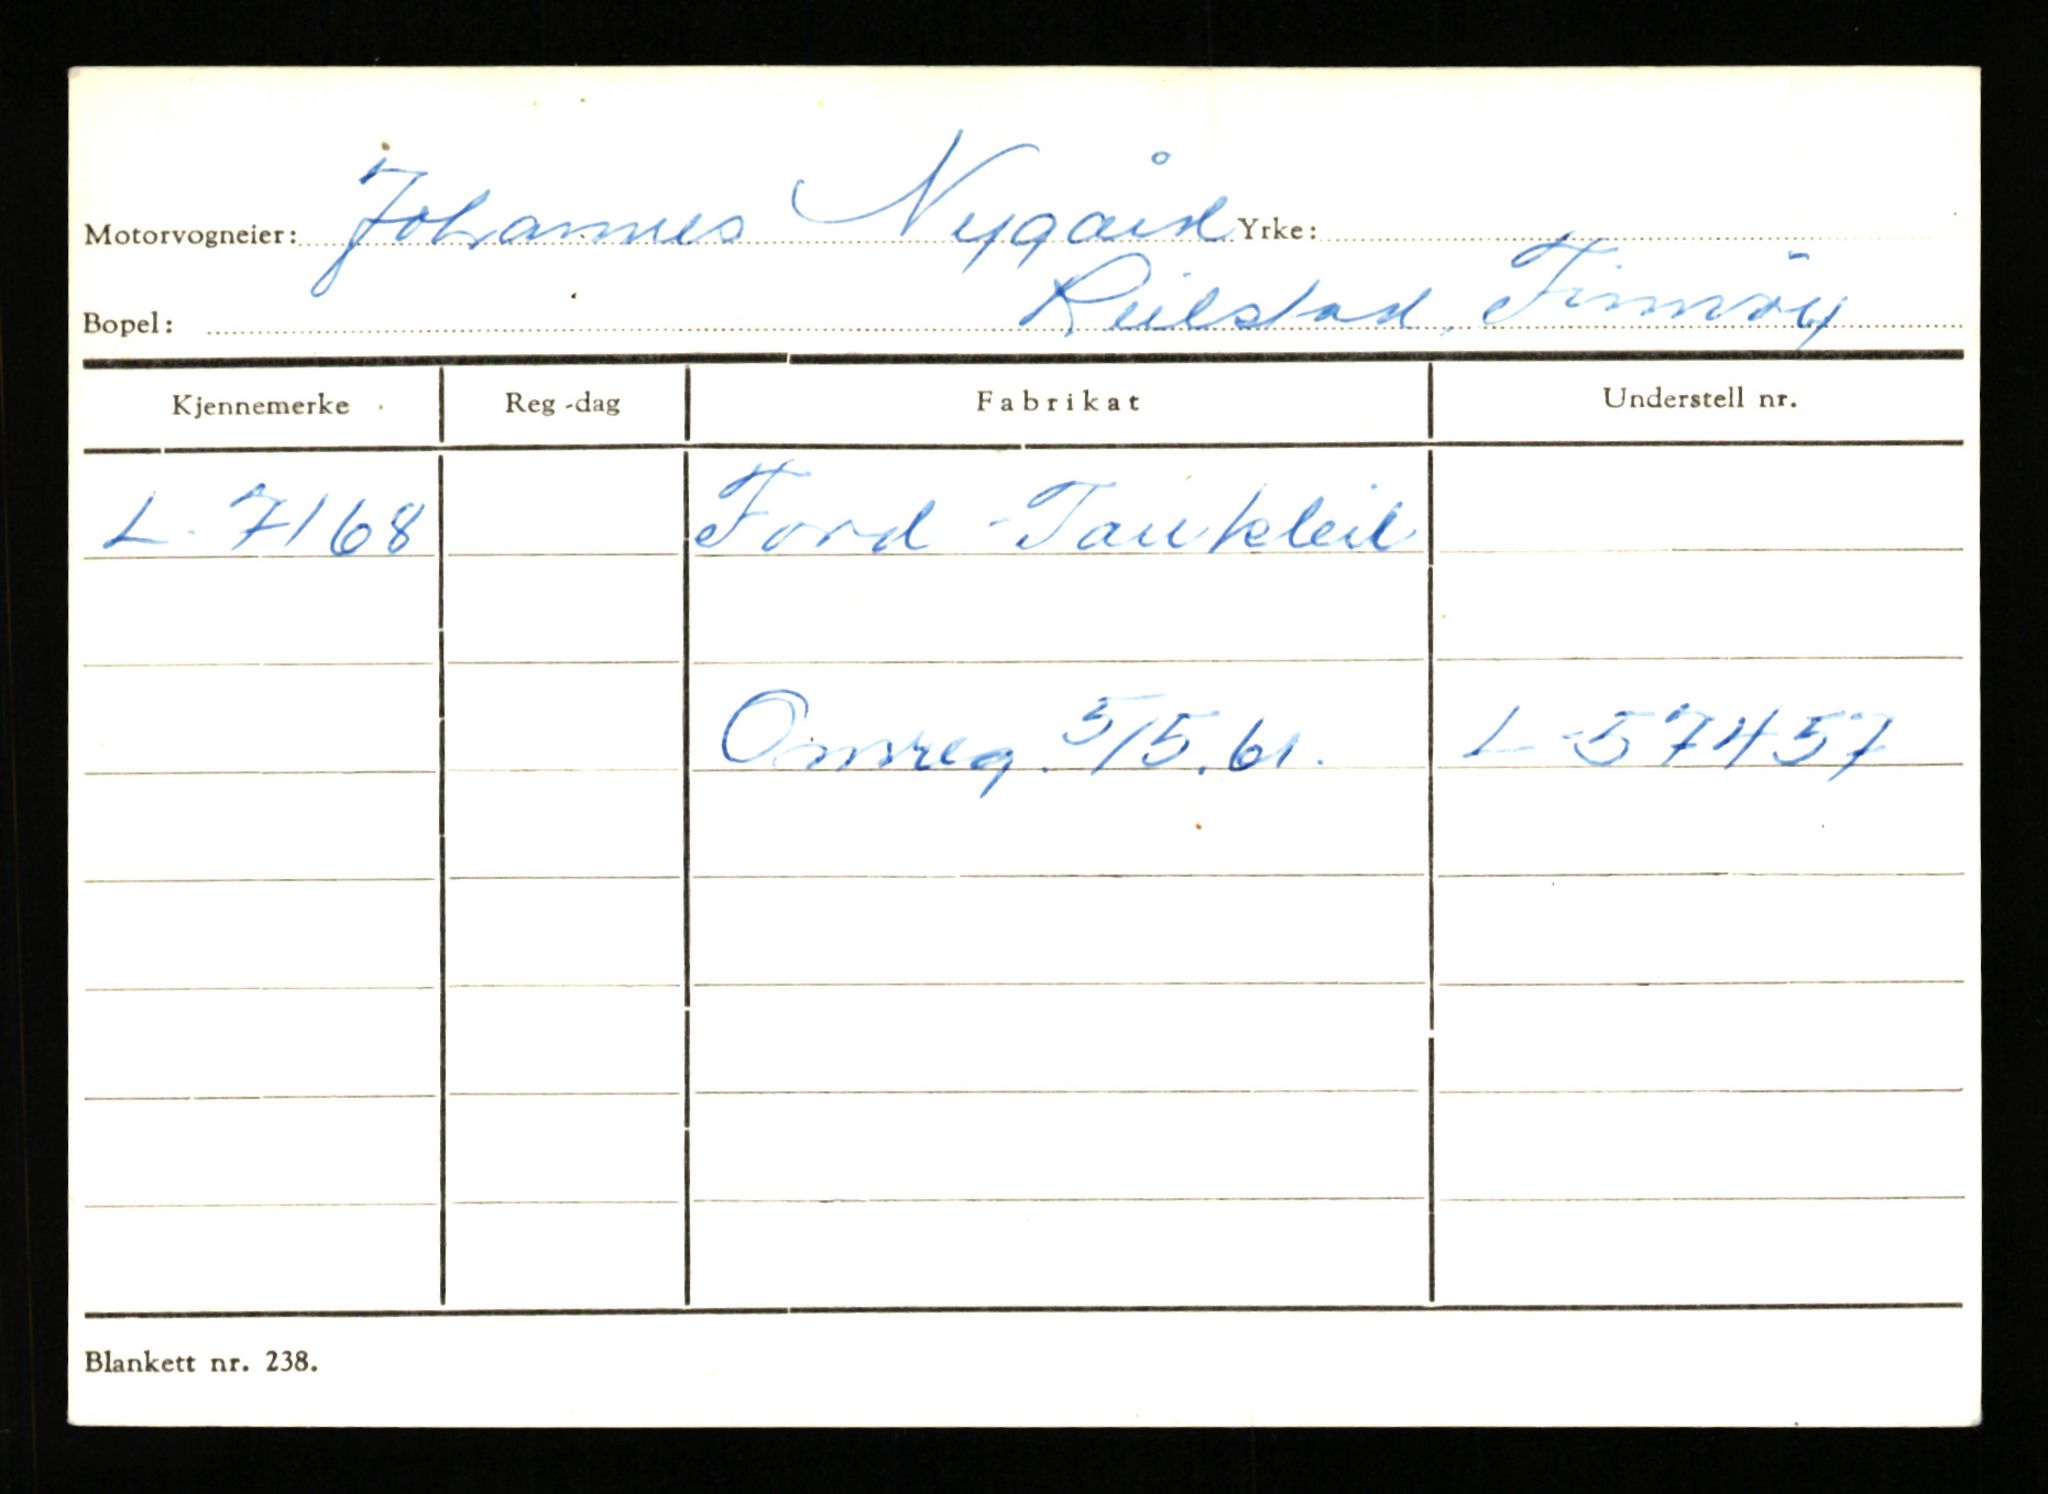 Motorvogneier: Johannes Nygård Yrke:
Bopel: Reilstad, Finnöy
Kjennemerke Reg-dag Fabrikat Understell nr.
L-7168 Ford - Tankbil
Omreg. 5/5.61. L-57457
Blankett nr. 238.